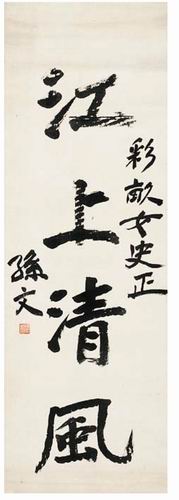 彩畝女史正
江上清風
孫文